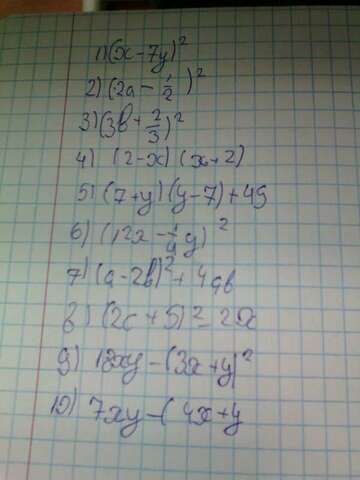 1) (x-7y)²
2) (2a - 1/2)²
3) (3b + 2/3)²
4) (2-x) (x+2)
5) (7+y) (y-7) + 49
6) (12x - 1/4 y)²
7) (a-2b)² + 4ab
8) (2c + 5)² -
9) 18xy - (3x+y)²
10) 7xy - (4x+y